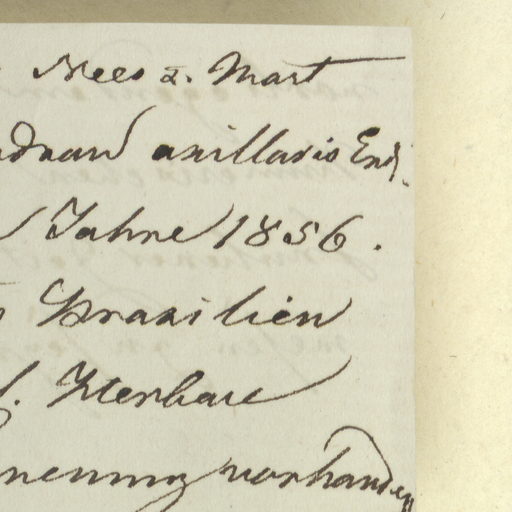 Nees & Mart
axillaris Endl.
Jahre 1856.
Brasilien
Herbar
nennung vorhanden